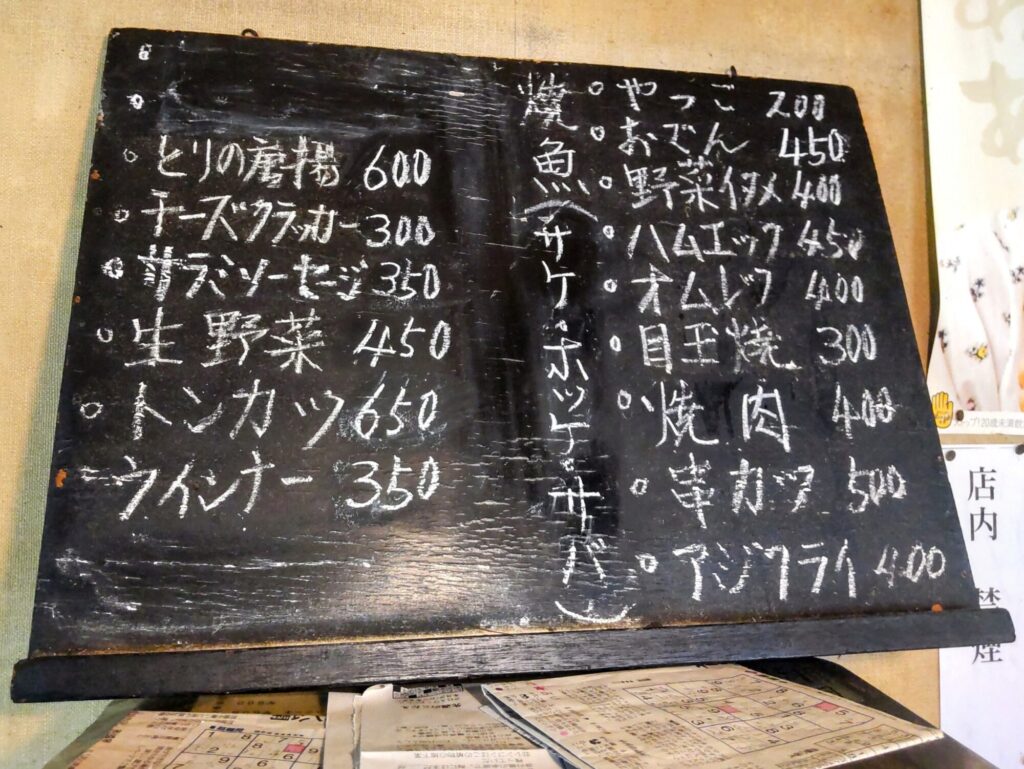 とりの唐揚 600
チーズクラッカー 300
サラミソーセージ 350
生野菜 450
トンカツ 650
ウインナー 350
焼魚(サケ・ホッケ・サバ)
やっこ 200
おでん 450
野菜イタメ 400
ハムエッグ 450
オムレツ 400
目玉焼 300
焼肉 400
串カツ 500
アジフライ 400
ストップ!20歳未満飲
店内 禁煙